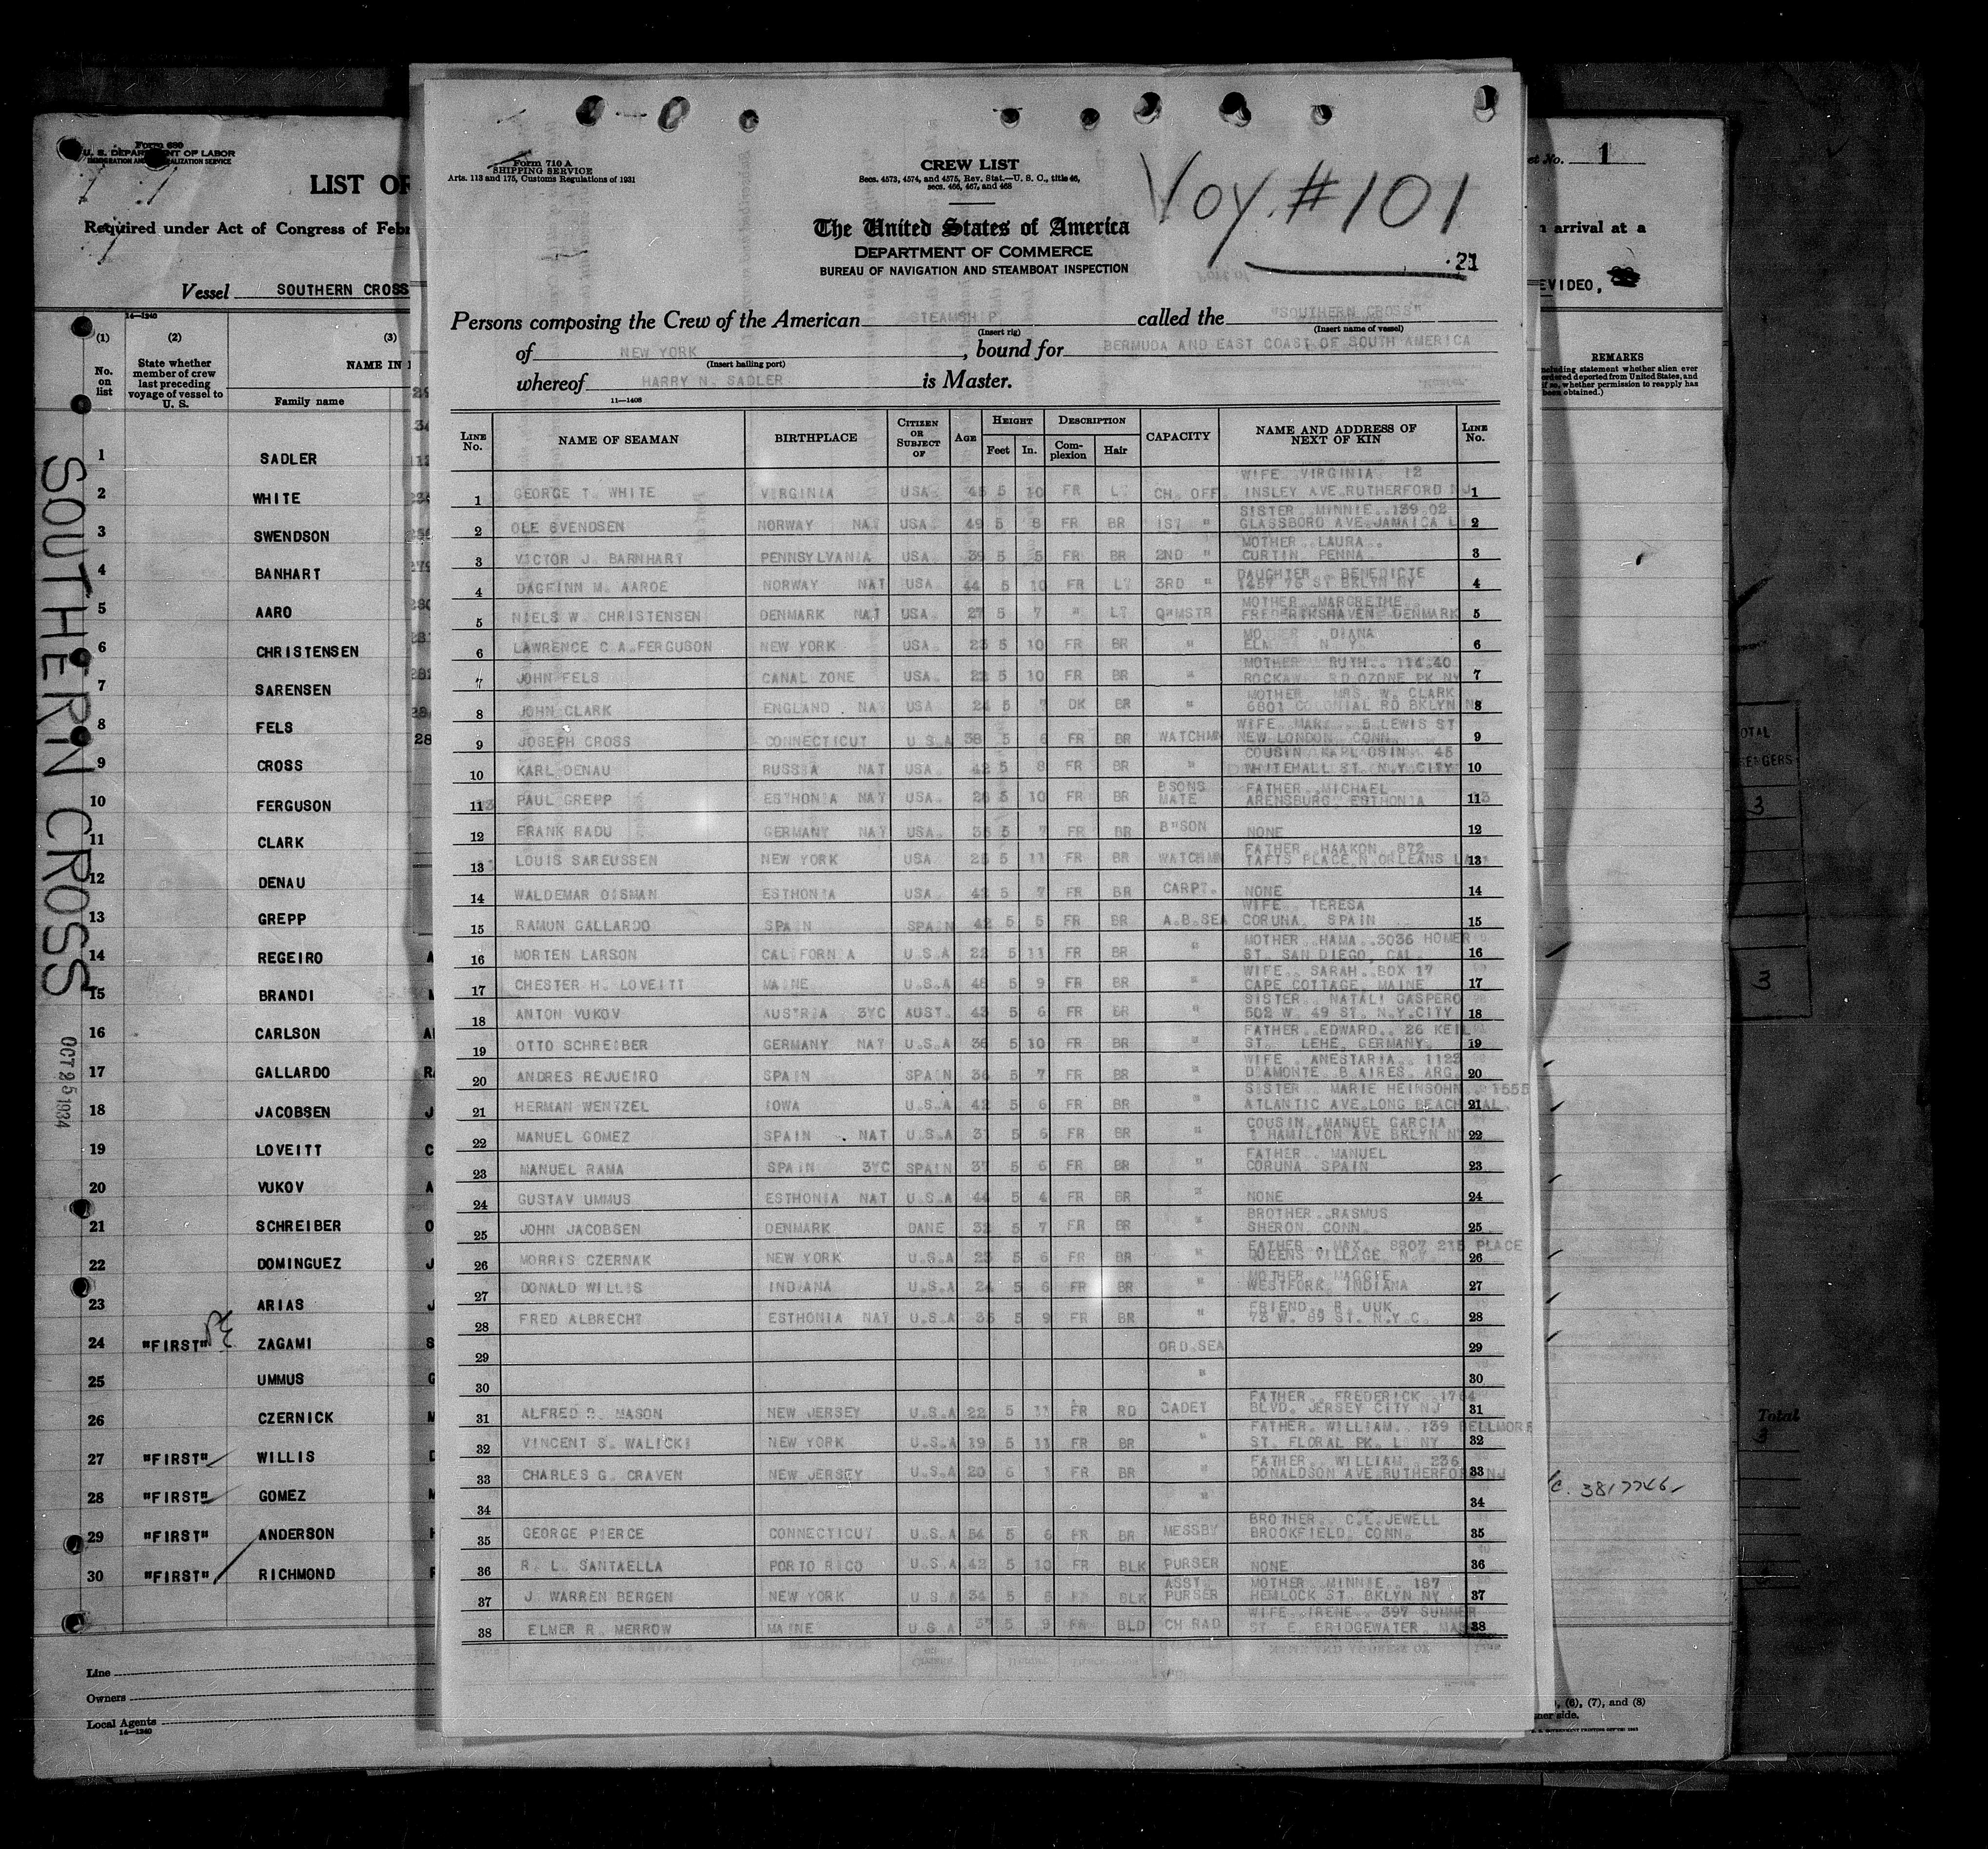 Form 680
U. S. DEPARTMENT OF LABOR
LIST OF
Required under Act of Congress of Feb
Vessel SOUTHERN CROSS
16—1240
(1) (2) (3)
No. on list
State whether member of crew last preceding voyage of vessel to U. S.
NAME IN
Family name
1 SADLER
2 WHITE
3 SWENDSON
4 BANHART
5 AARO
6 CHRISTENSEN
7 SARENSEN
8 FELS
9 CROSS
10 FERGUSON
11 CLARK
12 DENAU
13 GREPP
14 REGEIRO
15 BRANDI
16 CARLSON
17 GALLARDO
18 JACOBSEN
19 LOVEITT
20 VUKOV
21 SCHREIBER
22 DOMINGUEZ
23 ARIAS
24 "FIRST" ZAGAMI
25 UMMUS
26 CZERNICK
27 "FIRST" WILLIS
28 "FIRST" GOMEZ
29 "FIRST" ANDERSON
30 "FIRST" RICHMOND
Line
Owners
Local Agents
16—1240
SOUTHERN CROSS
OCT 25 1934
Form 710 A
SHIPPING SERVICE
Arts. 113 and 175, Customs Regulations of 1931
CREW LIST
Secs. 4573, 4574, and 4575, Rev. Stat.—U. S. C., title 46,
secs. 466, 467, and 468
Voy. #101
The United States of America
DEPARTMENT OF COMMERCE
BUREAU OF NAVIGATION AND STEAMBOAT INSPECTION
21
Persons composing the Crew of the American STEAMSHIP called the "SOUTHERN CROSS"
(Insert rig) (Insert name of vessel)
of NEW YORK, bound for BERMUDA AND EAST COAST OF SOUTH AMERICA
(Insert hailing port)
whereof HARRY N. SADLER is Master.
11—1408
LINE No. NAME OF SEAMAN BIRTHPLACE CITIZEN OR SUBJECT OF AGE HEIGHT DESCRIPTION CAPACITY NAME AND ADDRESS OF NEXT OF KIN LINE No.
Feet In. Complexion Hair
WIFE VIRGINIA 12
1 GEORGE T. WHITE VIRGINIA USA. 45 5 10 FR LT CH. OFF. INSLEY AVE.RUTHERFORD NJ 1
SISTER MINNIE..139 02
2 OLE SVENDSEN NORWAY NAT USA. 49 5 8 FR BR 1ST " GLASSBORO AVE.JAMAICA L 2
MOTHER LAURA..
3 VICTOR J. BARNHART PENNSYLVANIA USA. 39 5 5 FR BR 2ND " CURTIN PENNA 3
DAUGHTER.. BENEDICTE
4 DAGFINN M. AAROE NORWAY NAT USA. 44 5 10 FR LT 3RD " 1457 75 ST BKLYN NY 4
MOTHER MARGRETHE
5 NIELS W. CHRISTENSEN DENMARK NAT USA. 27 5 7 " LT Q"MSTR FREDERIKSHAVEN DENMARK 5
MOTHER DIANA
6 LAWRENCE C.A.FERGUSON NEW YORK USA. 23 5 10 FR BR " ELM N.Y. 6
MOTHER RUTH.. 114.40
7 JOHN FELS CANAL ZONE USA. 22 5 10 FR BR " ROCKAWAY RD OZONE PK NY 7
MOTHER MRS W. CLARK
8 JOHN CLARK ENGLAND NAT USA 24 5 7 DK BR " 6801 COLONIAL RD BKLYN 8
WIFE MARY 5 LEWIS ST
9 JOSEPH CROSS CONNECTICUT U S A 38 5 6 FR BR WATCHMN NEW LONDON CONN. 9
COUSIN KARL OSIN 45
10 KARL DENAU RUSSIA NAT USA. 42 5 8 FR BR " WHITEHALL ST. N.Y.CITY 10
BSONS FATHER MICHAEL
11 PAUL GREPP ESTHONIA NAT USA. 26 5 10 FR BR MATE ARENSBURG ESTHONIA 11
12 FRANK RADU GERMANY NAT USA. 36 5 7 FR BR B"SON NONE 12
FATHER HAAKON 872
13 LOUIS SAREUSSEN NEW YORK USA 25 5 11 FR BR WATCHMN TAFTS PLACE N.ORLEANS LA 13
14 WALDEMAR OISMAN ESTHONIA USA. 42 5 7 FR BR CARPT. NONE 14
WIFE TERESA
15 RAMON GALLARDO SPAIN SPAIN 42 5 5 FR BR A.B.SEA CORUNA SPAIN 15
MOTHER HAMA..3036 HOMER
16 MORTEN LARSON CALIFORNIA U.S.A 22 5 11 FR BR " ST. SAN DIEGO, CAL. 16
WIFE.. SARAH..BOX 17
17 CHESTER H. LOVEITT MAINE U.S.A 48 5 9 FR BR " CAPE COTTAGE. MAINE 17
SISTER.. NATALI GASPERO
18 ANTON VUKOV AUSTRIA 3YC AUST. 43 5 6 FR BR " 502 W. 49 ST. N.Y.CITY 18
FATHER..EDWARD.. 26 KEIL
19 OTTO SCHREIBER GERMANY NAT U.S.A 36 5 10 FR BR " ST. LEHE, GERMANY. 19
WIFE.. ANESTARIA.. 1122
20 ANDRES REJUEIRO SPAIN SPAIN 36 5 7 FR BR " D'AMONTE B.AIRES. ARG. 20
SISTER.. MARIE HEINSOHN 1555
21 HERMAN WENTZEL IOWA U.S.A 42 5 6 FR BR " ATLANTIC AVE.LONG BEACH CAL. 21
COUSIN MANUEL GARCIA
22 MANUEL GOMEZ SPAIN NAT U.S.A 31 5 5 FR BR " 1 HAMILTON AVE BKLYN NY 22
FATHER.. MANUEL
23 MANUEL RAMA SPAIN 3YC SPAIN 37 5 6 FR BR " CORUNA SPAIN 23
24 GUSTAV UMMUS ESTHONIA NAT U.S.A 44 5 4 FR BR " NONE 24
BROTHER..RASMUS
25 JOHN JACOBSEN DENMARK DANE 32 5 7 FR BR " SHERON CONN. 25
FATHER.. MAX.. 8907 215 PLACE
26 MORRIS CZERNAK NEW YORK U.S.A 23 5 6 FR BR " QUEENS VILLAGE, N.Y. 26
MOTHER.. MAGGIE
27 DONALD WILLIS INDIANA U.S.A 24 5 6 FR BR " WESTFORK, INDIANA 27
FRIEND.. R. UUK
28 FRED ALBRECHT ESTHONIA NAT U.S.A 35 5 9 FR BR " 73 W. 89 ST. N.Y.C. 28
29 ORD.SEA 29
30 " 30
FATHER.. FREDERICK..1764
31 ALFRED R. MASON NEW JERSEY U.S.A 22 5 11 FR RD CADET BLVD. JERSEY CITY NJ 31
FATHER. WILLIAM.. 139 BELLMORE
32 VINCENT S. WALICKI NEW YORK U.S.A 19 5 11 FR BR " ST. FLORAL PK. L NY 32
FATHER.. WILLIAM.. 236
33 CHARLES G. CRAVEN NEW JERSEY U.S.A 20 6 1 FR BR " DONALDSON AVE RUTHERFORD NJ 33
34 " 34
BROTHER.. C.L.JEWELL
35 GEORGE PIERCE CONNECTICUT U.S.A 54 5 6 FR BR MESSBY BROOKFIELD, CONN. 35
36 R. L. SANTAELLA PORTO RICO U.S.A 42 5 10 FR BLK PURSER NONE 36
ASST. MOTHER MINNIE.. 187
37 J. WARREN BERGEN NEW YORK U.S.A 34 5 6 BLK PURSER HEMLOCK ST BKLYN NY 37
WIFE..IRENE.. 397 SUMNER
38 ELMER R. MERROW MAINE U.S.A 37 5 9 BLD CH RAD ST E. BRIDGEWATER MASS 38
et No. 1
n arrival at a
EVIDEO,
REMARKS
(Including statement whether alien ever ordered deported from United States, and if so, whether permission to reapply has been obtained.)
3
3
Total
3
, (6), (7), and (8)